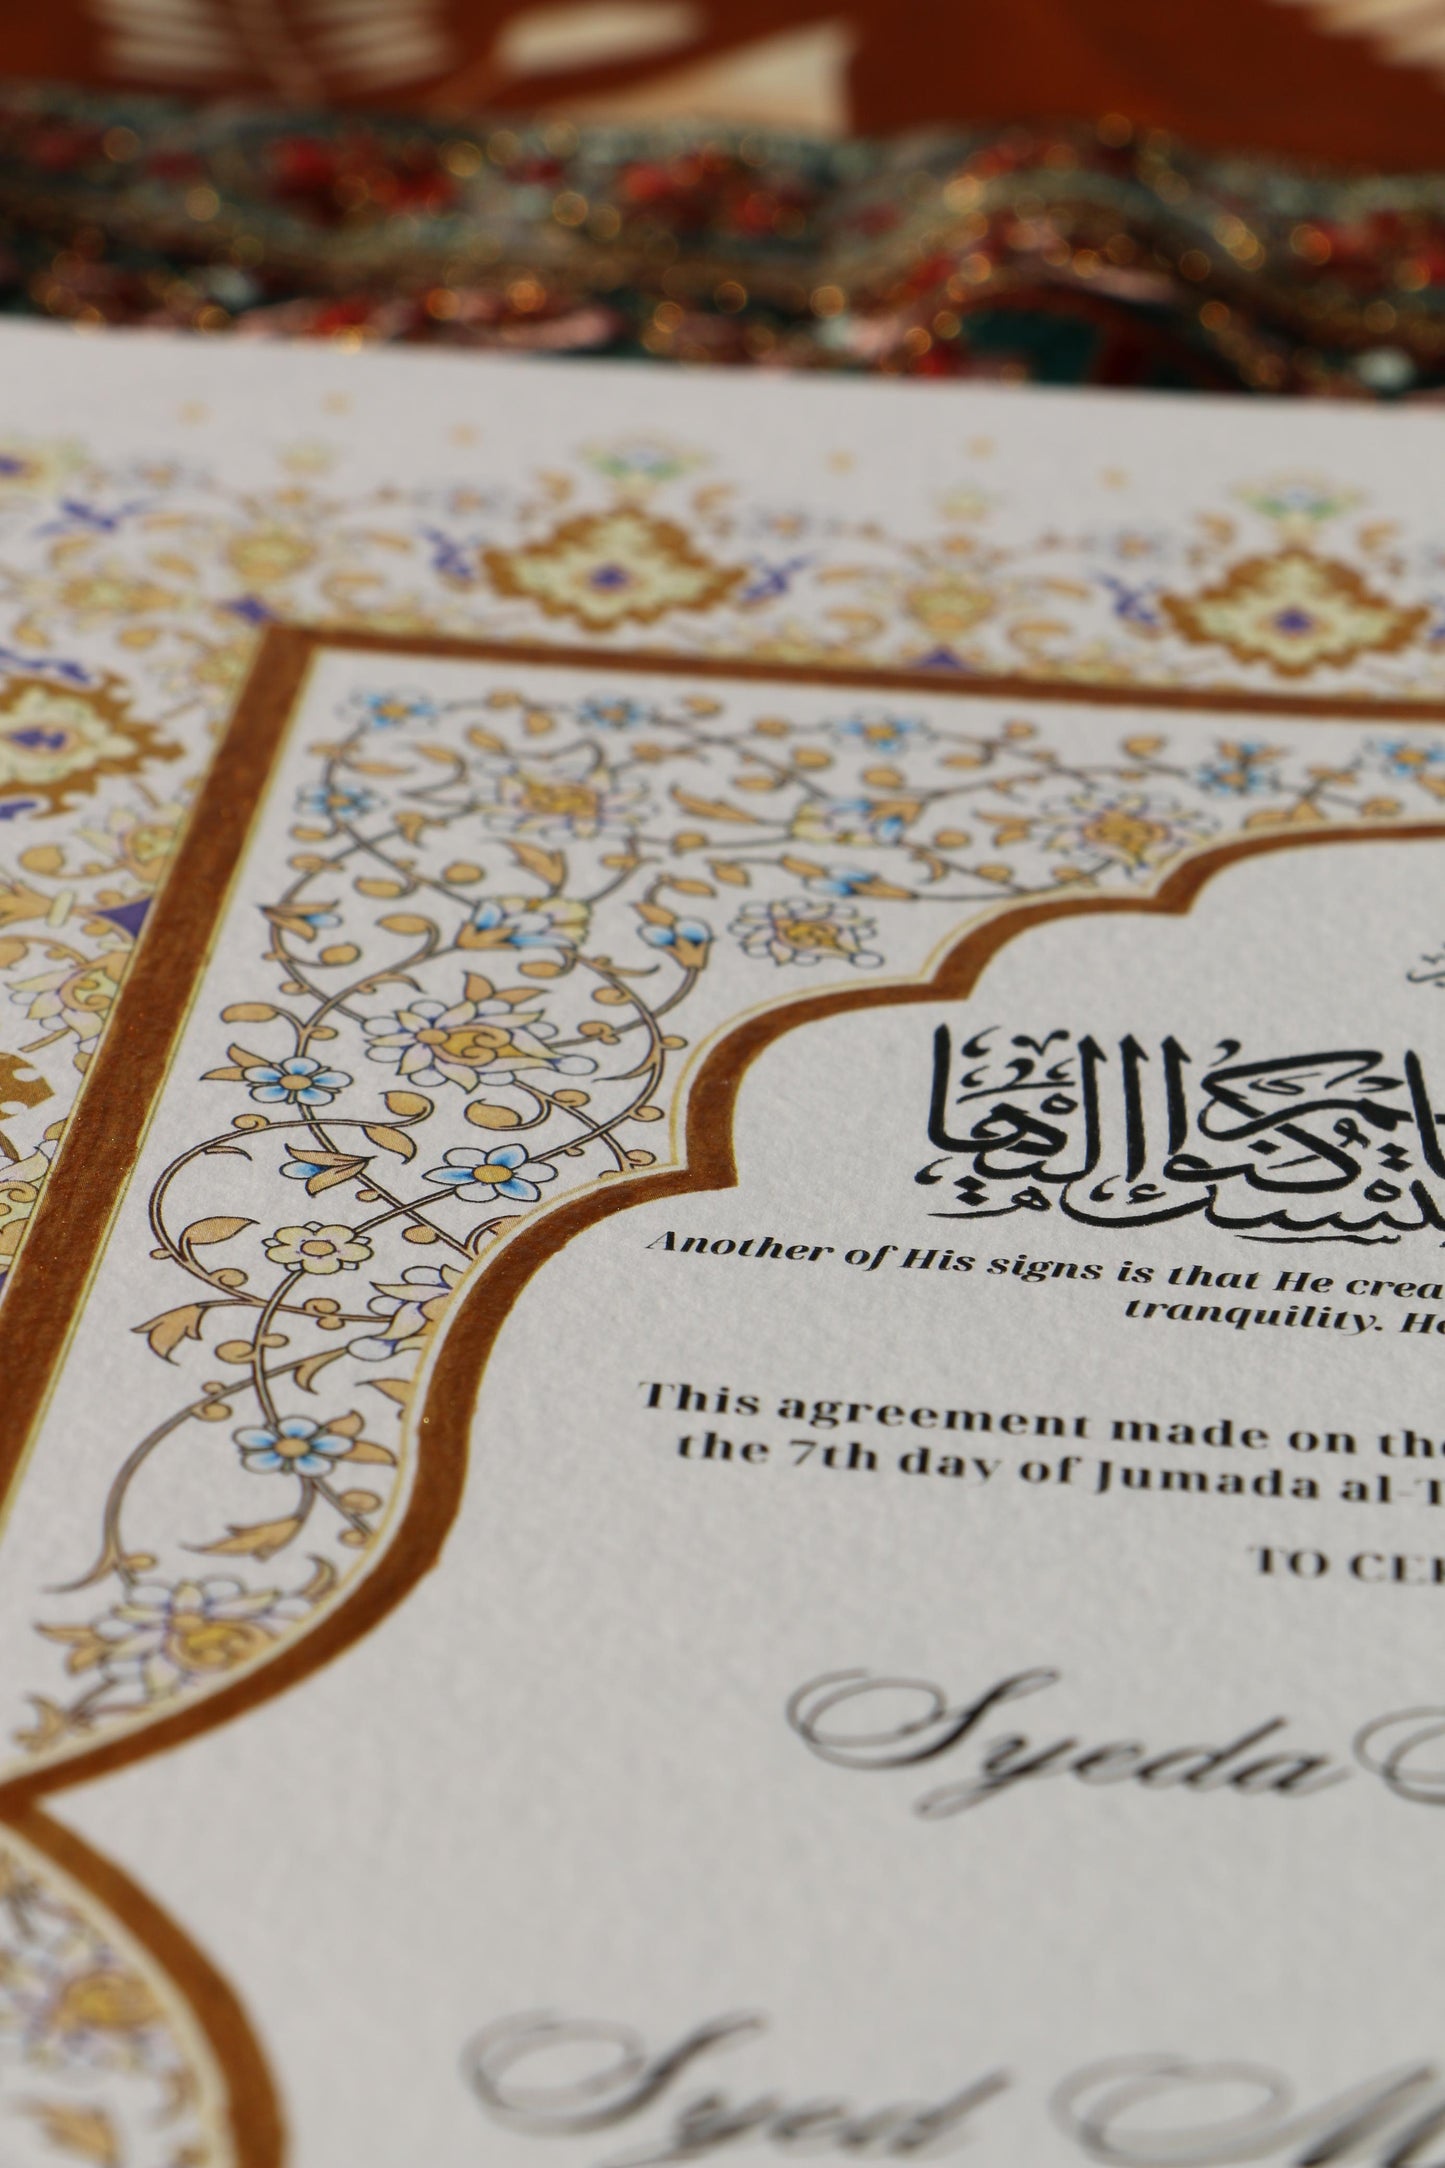 لتسكنوا إليها
Another of His signs is that He crea
tranquility. He
This agreement made on the
the 7th day of Jumada al-T
TO CER
Syeda
Syed M